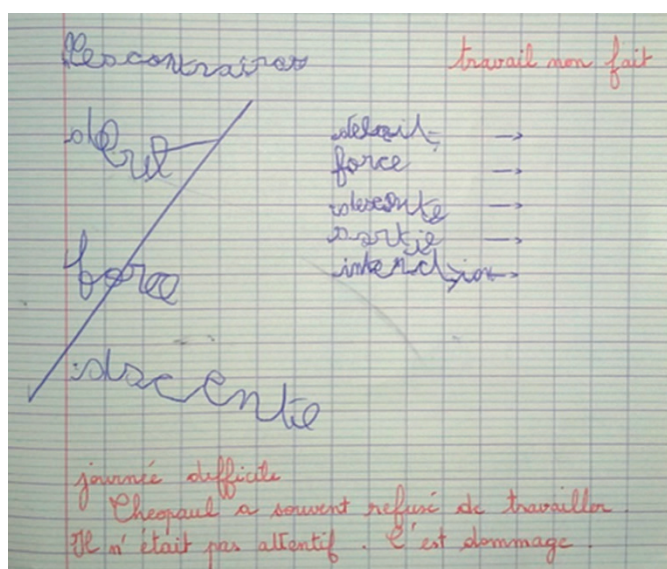 Les contraires
travail non fait
debut
force
dscente
début →
force →
descente →
sortie →
interdiction →
journée difficile
Cheopaul a souvent refusé de travailler.
Il n'était pas attentif. C'est dommage.